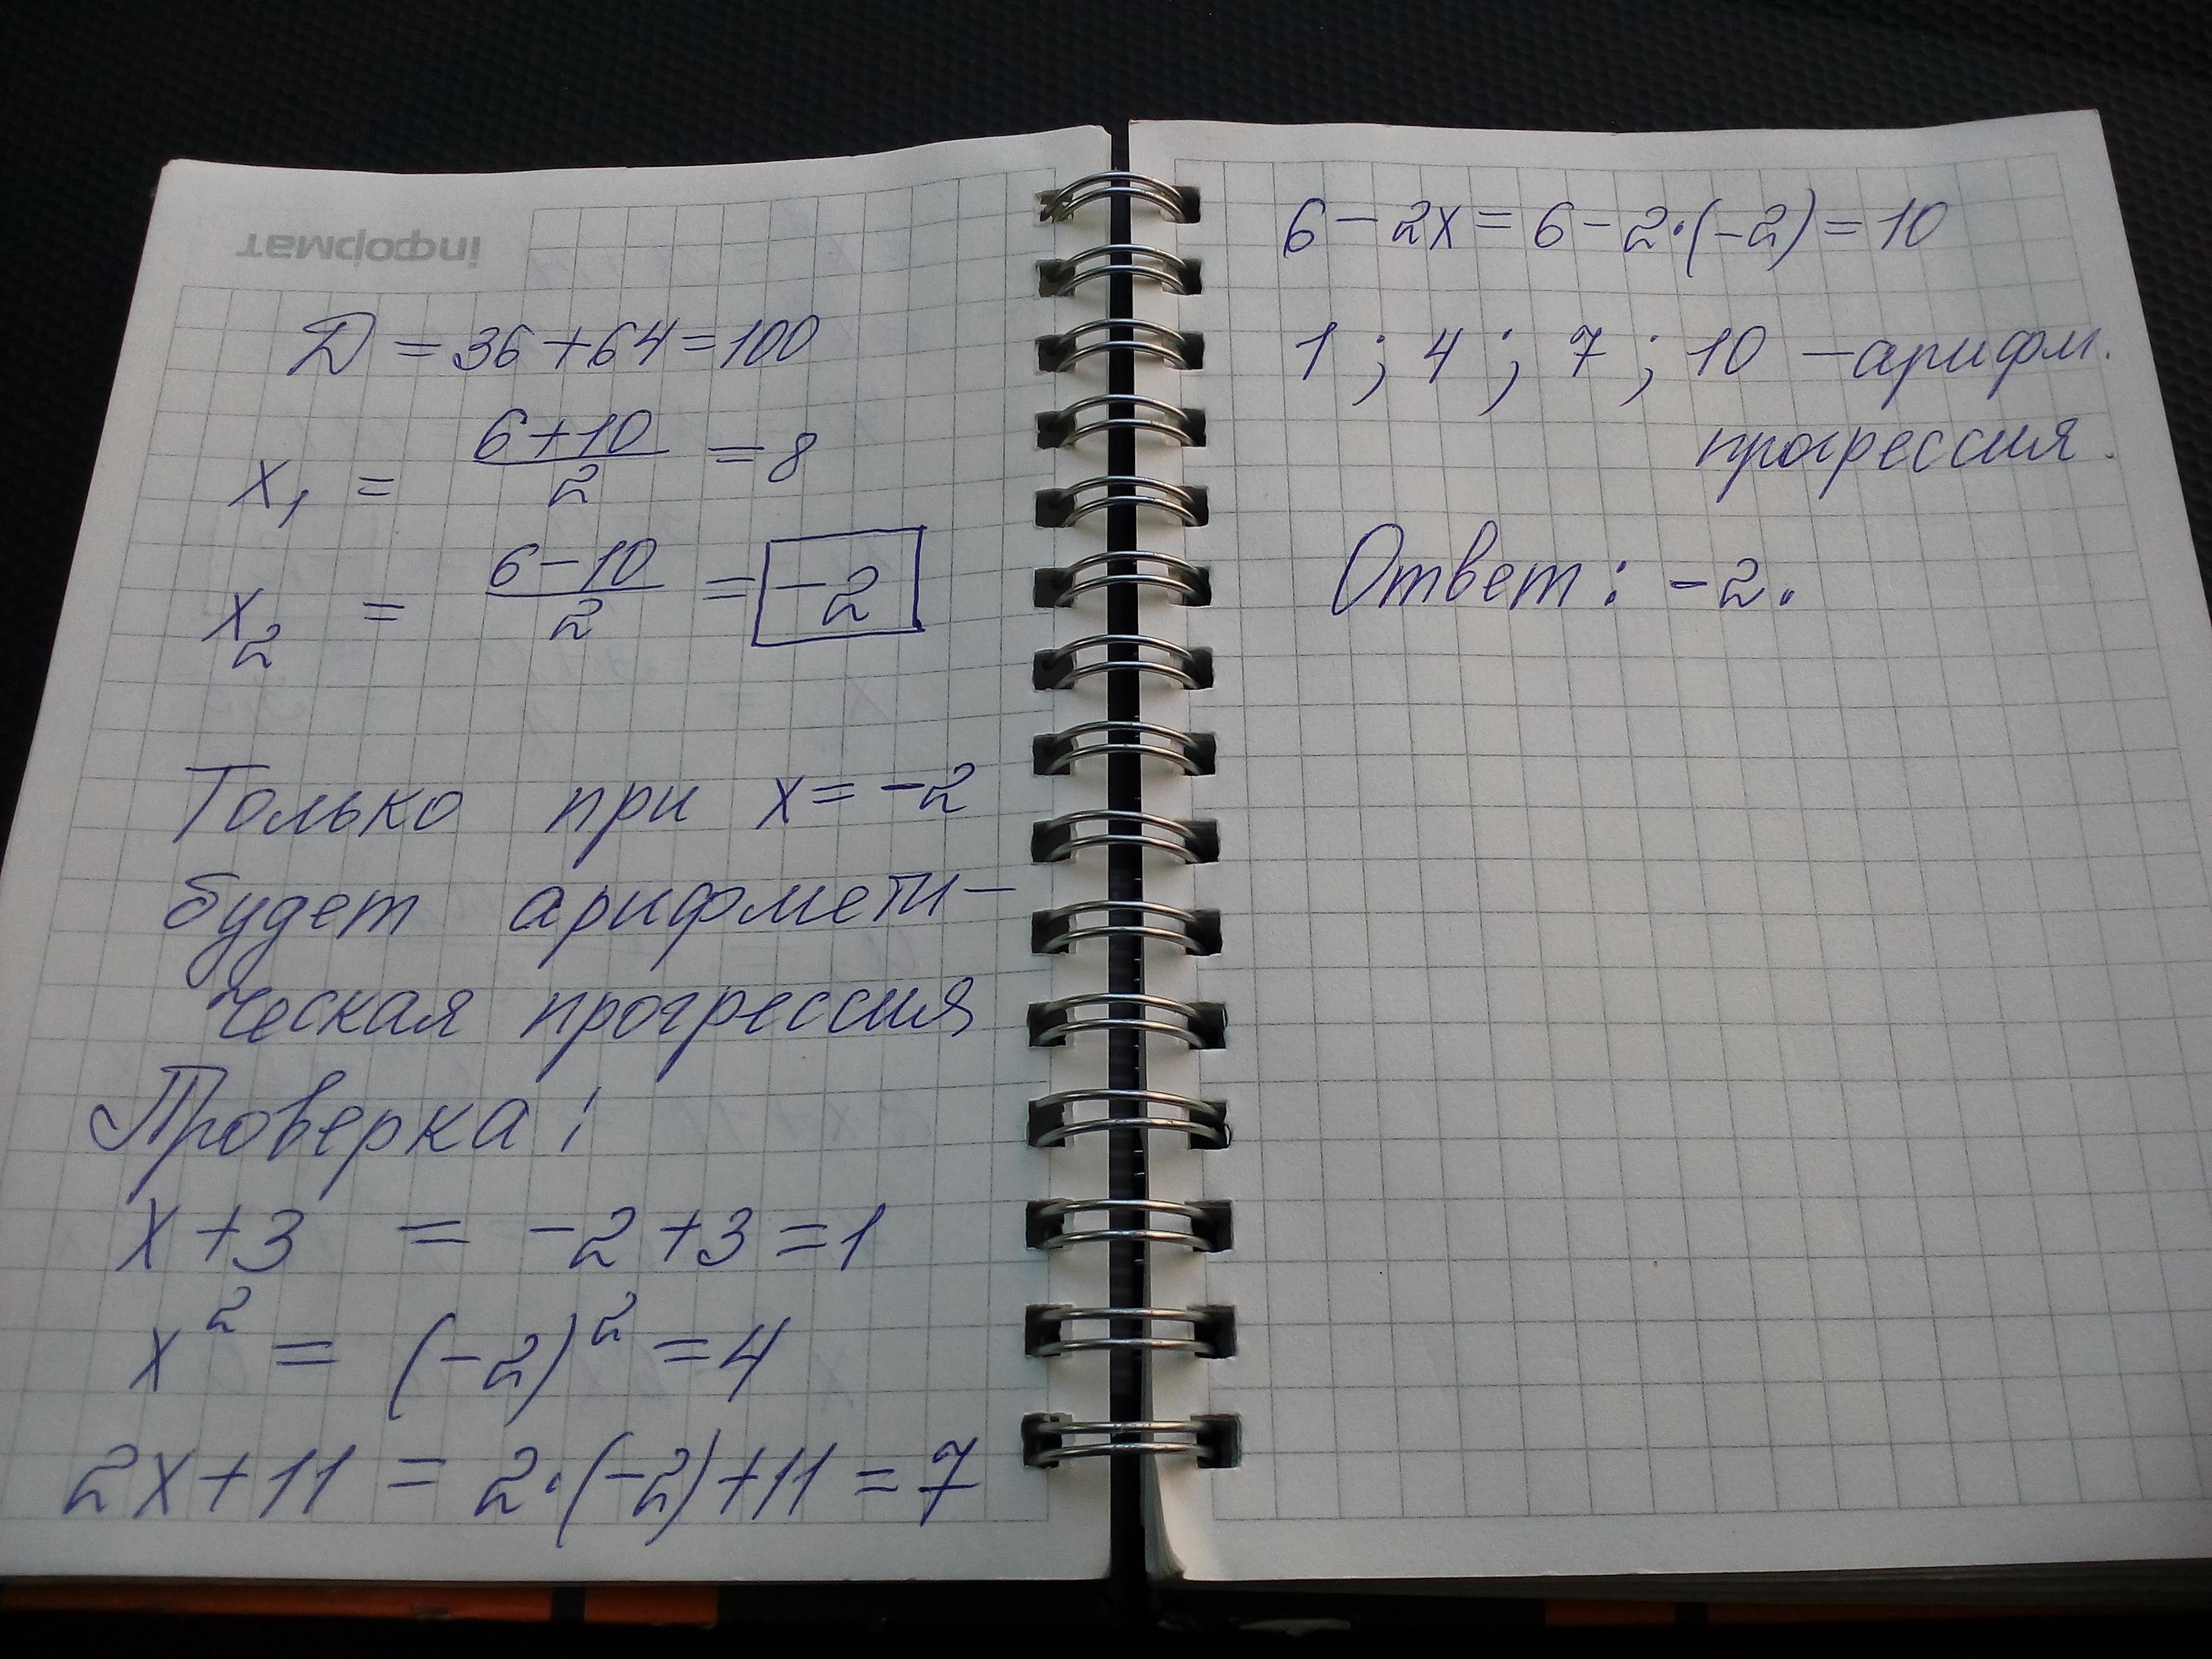 інформат
D = 36 + 64 = 100
x₁ = (6+10)/2 = 8
x₂ = (6-10)/2 = -2
Только при x = -2
будет арифмети-
ческая прогрессия
Проверка:
x + 3 = -2 + 3 = 1
x² = (-2)² = 4
2x + 11 = 2·(-2) + 11 = 7
6 - 2x = 6 - 2·(-2) = 10
1 ; 4 ; 7 ; 10 - арифм.
прогрессия.
Ответ: -2.